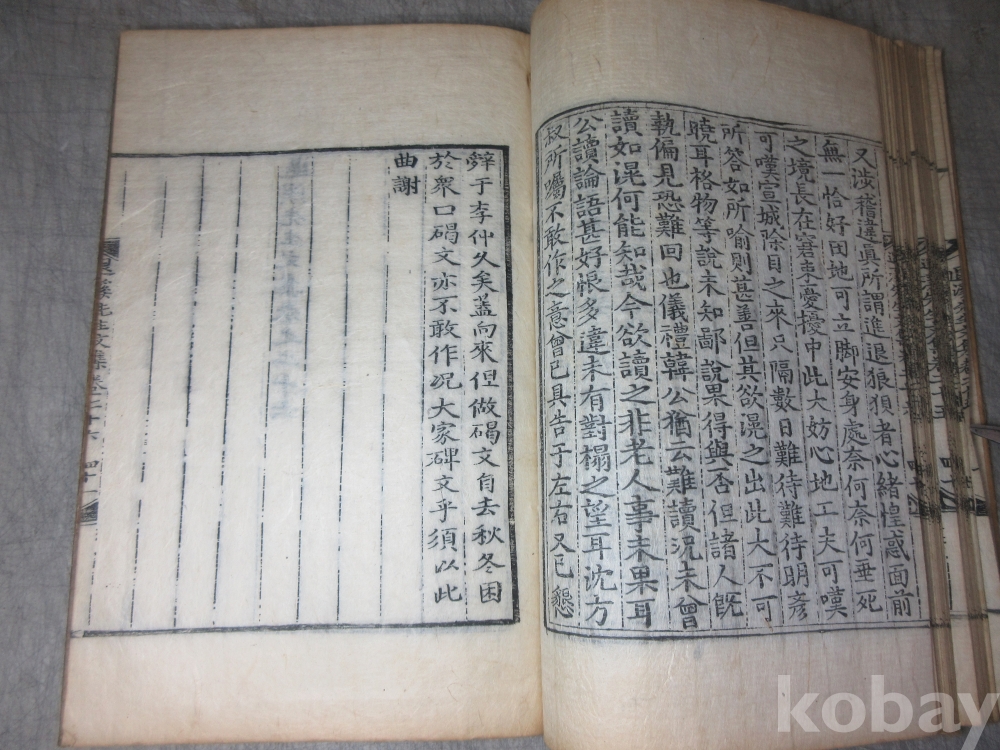 又涉稽違眞所謂進退狼狽者心緒惶惑面前
無一恰好田地可立脚安身處奈何奈何垂死
之境長在窘束憂擾中此大妨心地工夫可嘆
可嘆宣城除目之來只隔數日難待難待明彦
所答如所喻則甚善但其欲滉之出此大不可
曉耳格物等說未知鄙說果得與否但諸人旣
執偏見恐難回也儀禮韓公猶云難讀況未曾
讀如滉何能知哉今欲讀之非老人事未果耳
公讀論語甚好悵多違未有對榻之望耳沈方
叔所囑不敢作之意曾已具告于左右又已懇
辭于李仲久矣蓋向來但做碣文自去秋冬困
於衆口碣文亦不敢作况大家碑文乎須以此
曲謝
退溪先生文集卷二十六
四十一
kobay